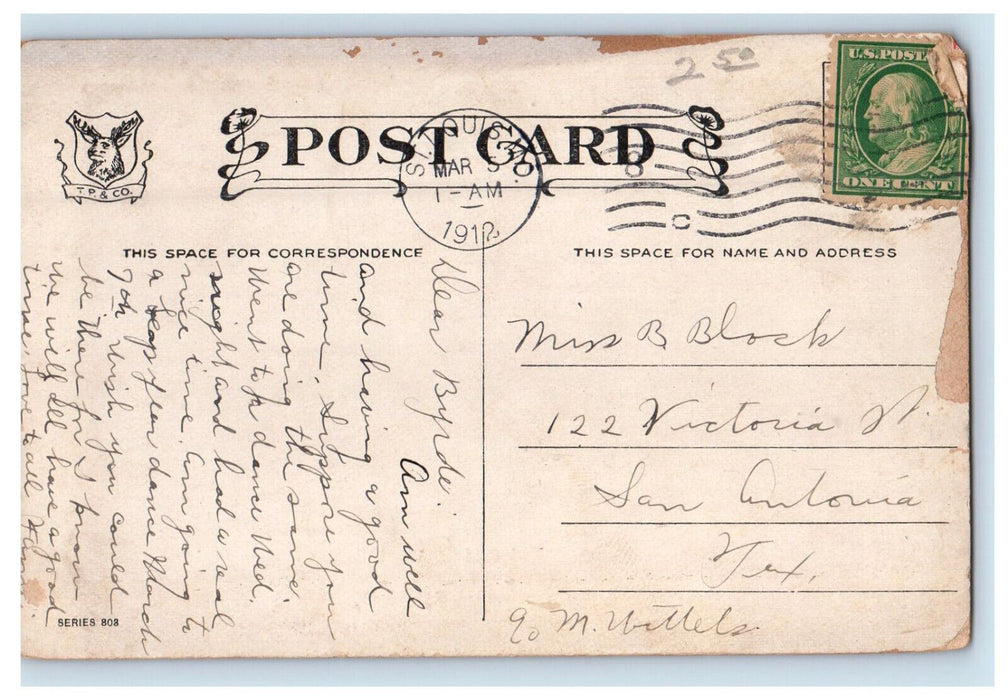 2 50
U.S. POST
ONE CENT
T. P. & CO.
POST CARD
ST. LOUIS, MO.
MAR 5
1 - AM
1912
THIS SPACE FOR CORRESPONDENCE
THIS SPACE FOR NAME AND ADDRESS
Dear Byrde:
Am well
and having a good
time. Suppose you
are doing the same.
Went to a dance Wed.
night and had a real
nice time. Am going to
a leap year dance March
7th Wish you could
be there for I know
we will all have a good
time. Love to all
Miss B Block
122 Victoria St.
San Antonia
Tex.
c/o M. Wittels
SERIES 803